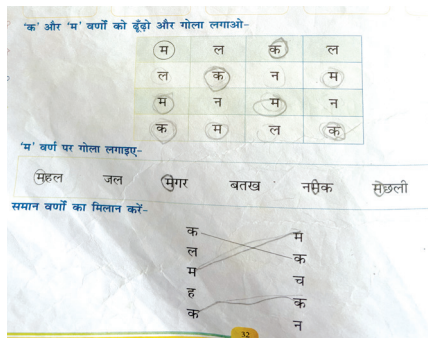 'क' और 'म' वर्णों को ढूँढ़ो और गोला लगाओ-
म ल क ल
ल क न म
म न म न
क म ल क
'म' वर्ण पर गोला लगाइए-
महल जल मगर बतख नमक मछली
समान वर्णों का मिलान करें-
क म
ल क
म च
ह क
क न
32